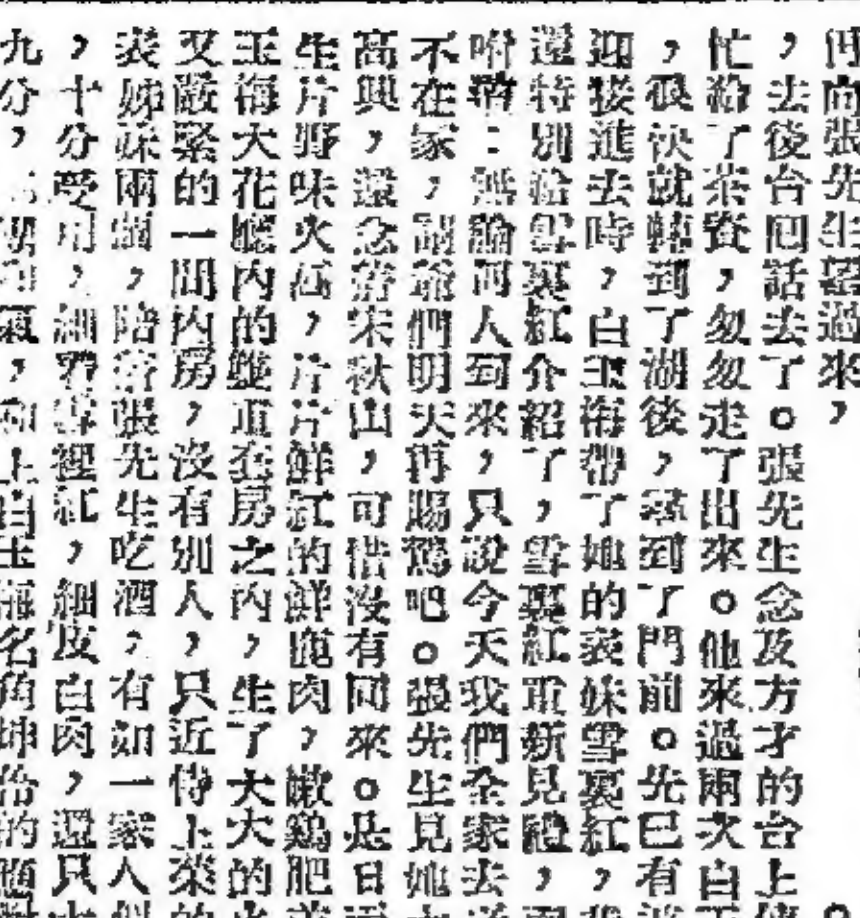 再向張先生望過來，
，去後台回話去了。張先生念及方才的台上
忙給了茶資，匆匆走了出來。他來過兩次白
，很快就轉到了湖後，尋到了門前。先已有
迎接進去時，白玉梅帶了她的表妹雪裏紅，
還特別給雪裏紅介紹了，雪裏紅重新見禮，
咐着：無論何人到來，只說今天我們全家去
不在家，請爺們明天再賜駕吧。張先生見她
高興，還念著宋秋山，可惜沒有同來。是日
生片野味火鍋，片片鮮紅的鮮鹿肉，嫩鷄肥
玉梅大花廳內的雙重套房之內，生了大大的
又嚴緊的一間內房，沒有別人，只近侍上菜的
表姊妹兩個，陪著張先生吃酒，有如一家人
，十分受用，細看雪裡紅，細皮白肉，還只
九分，和氣，上白玉梅名角坤伶的